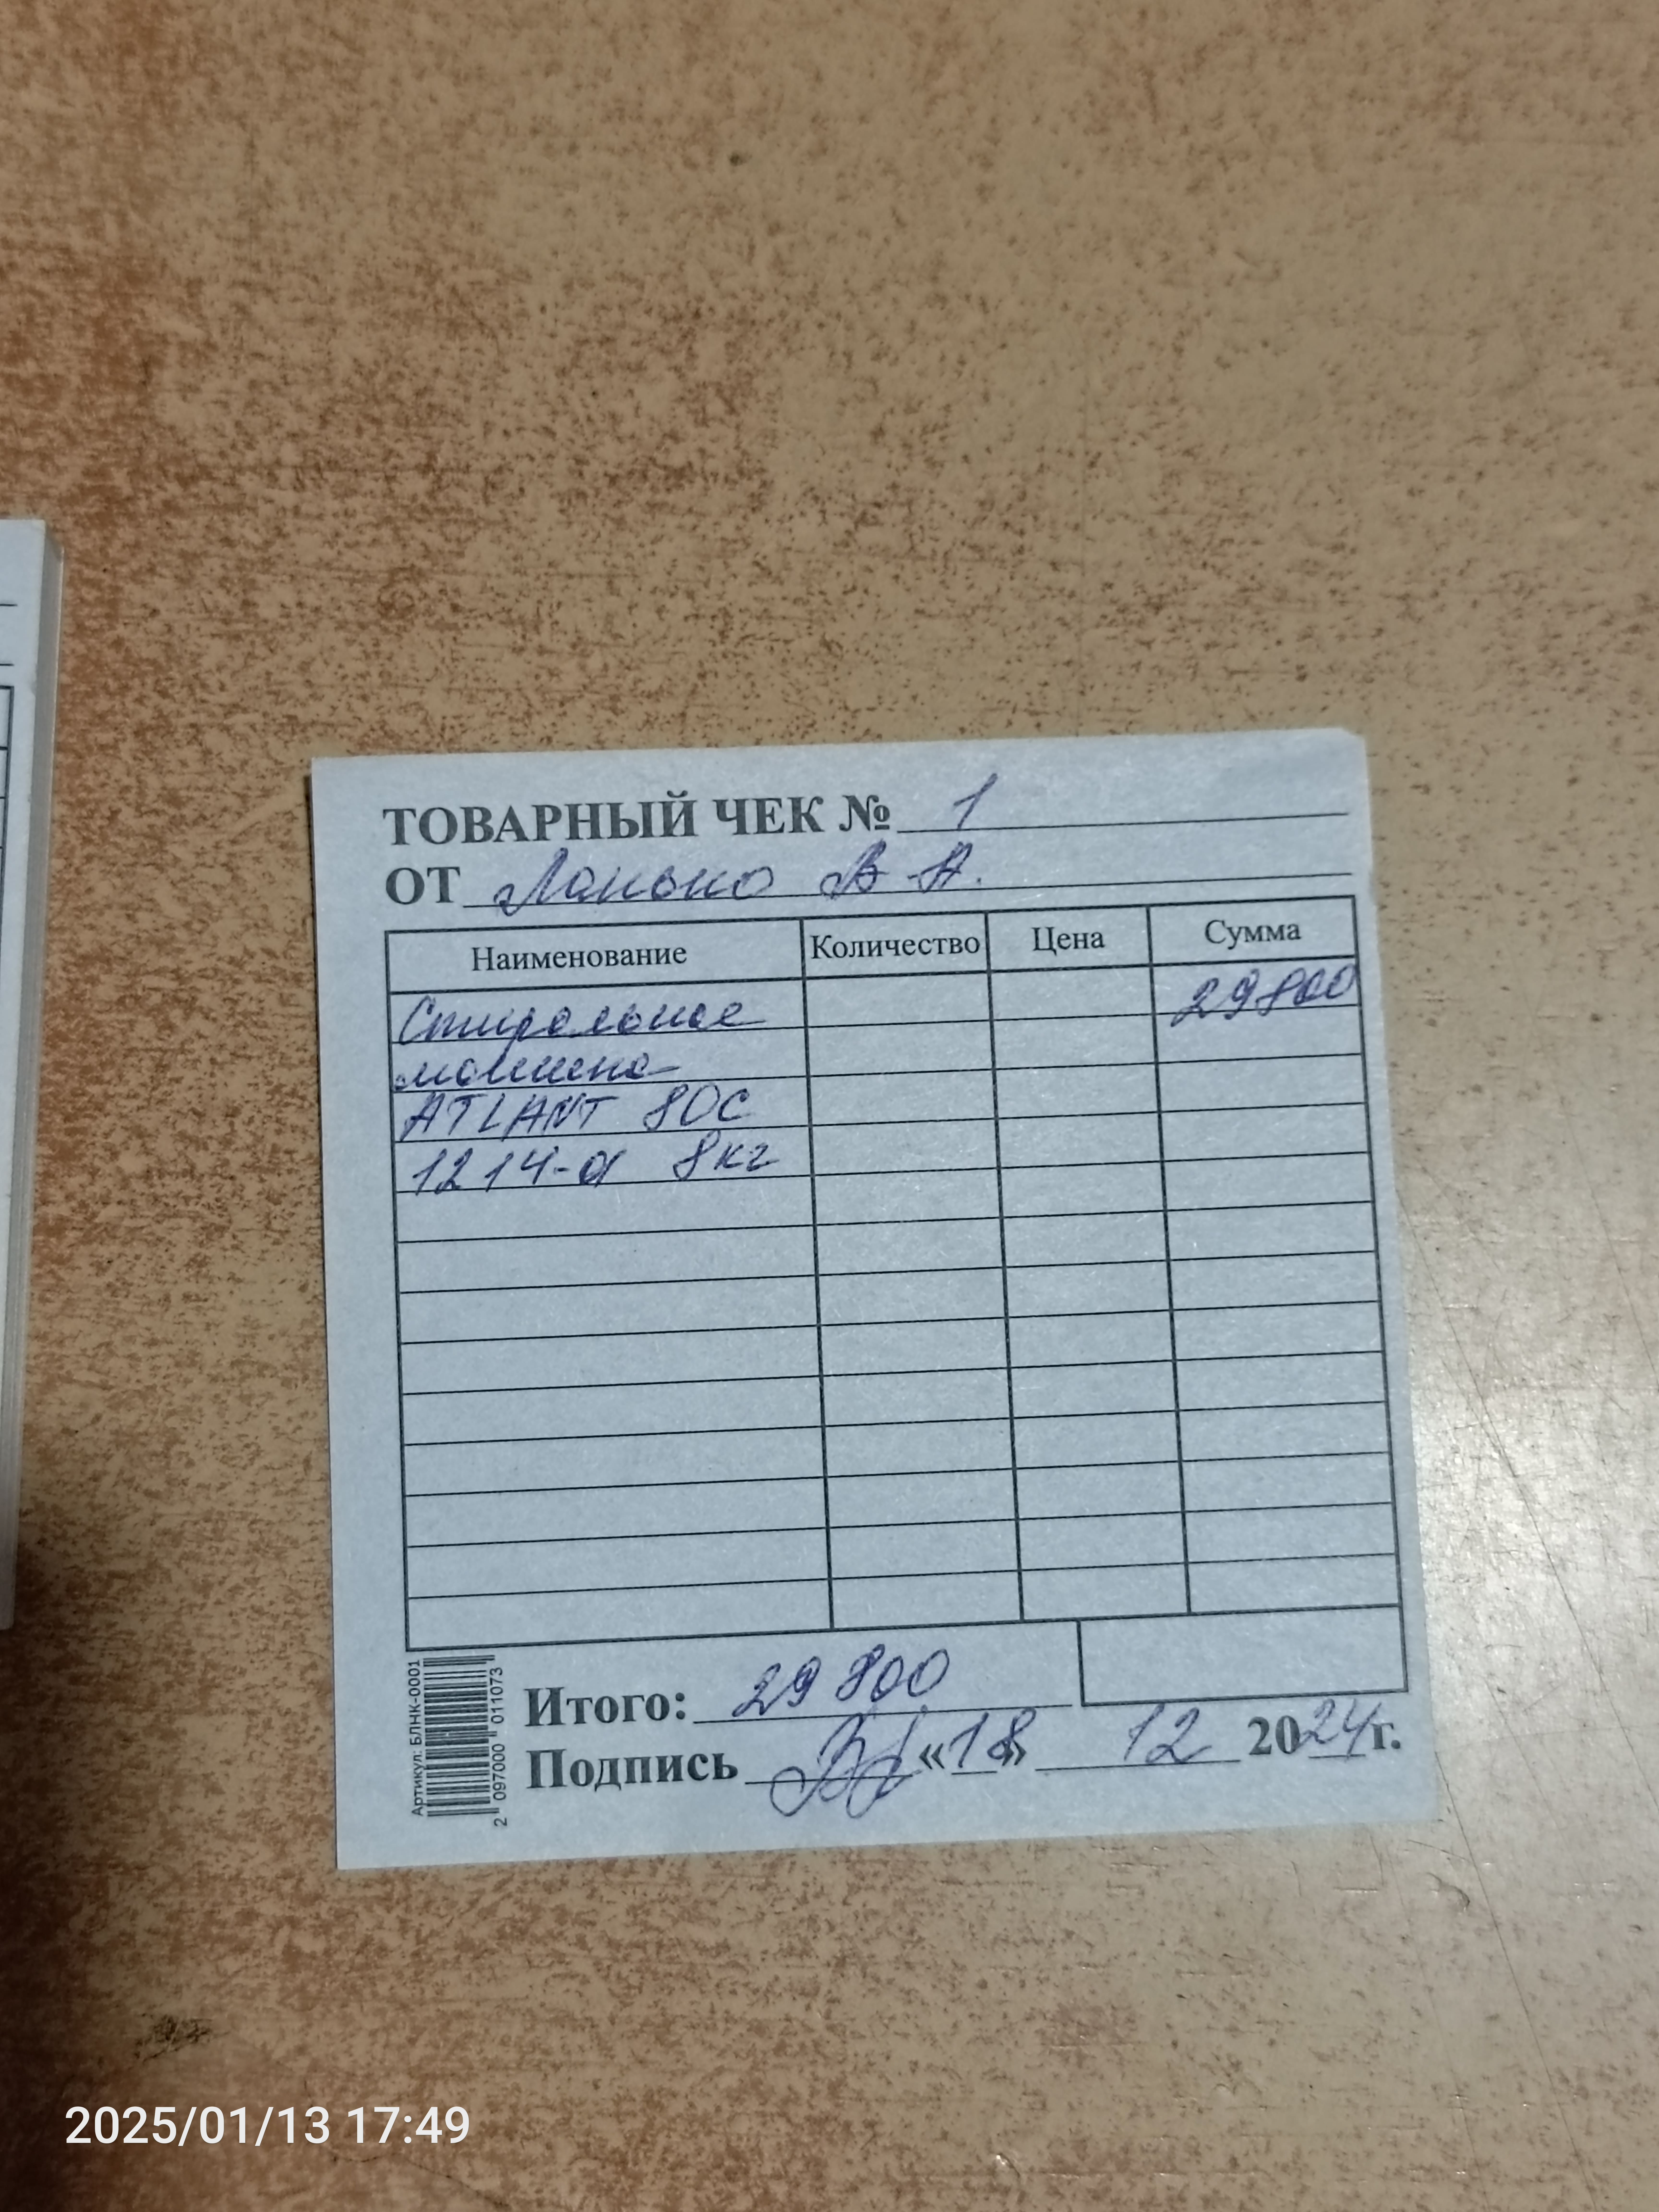 ТОВАРНЫЙ ЧЕК № 1
ОТ Ланько В А.
Наименование Количество Цена Сумма
Стиральная 29800
машина
ATLANT 80С
1214-а 8кг
Итого: 29 800
Подпись «18» 12 2024г.
Артикул: БЛНК-0001
2 097000 011073
2025/01/13 17:49